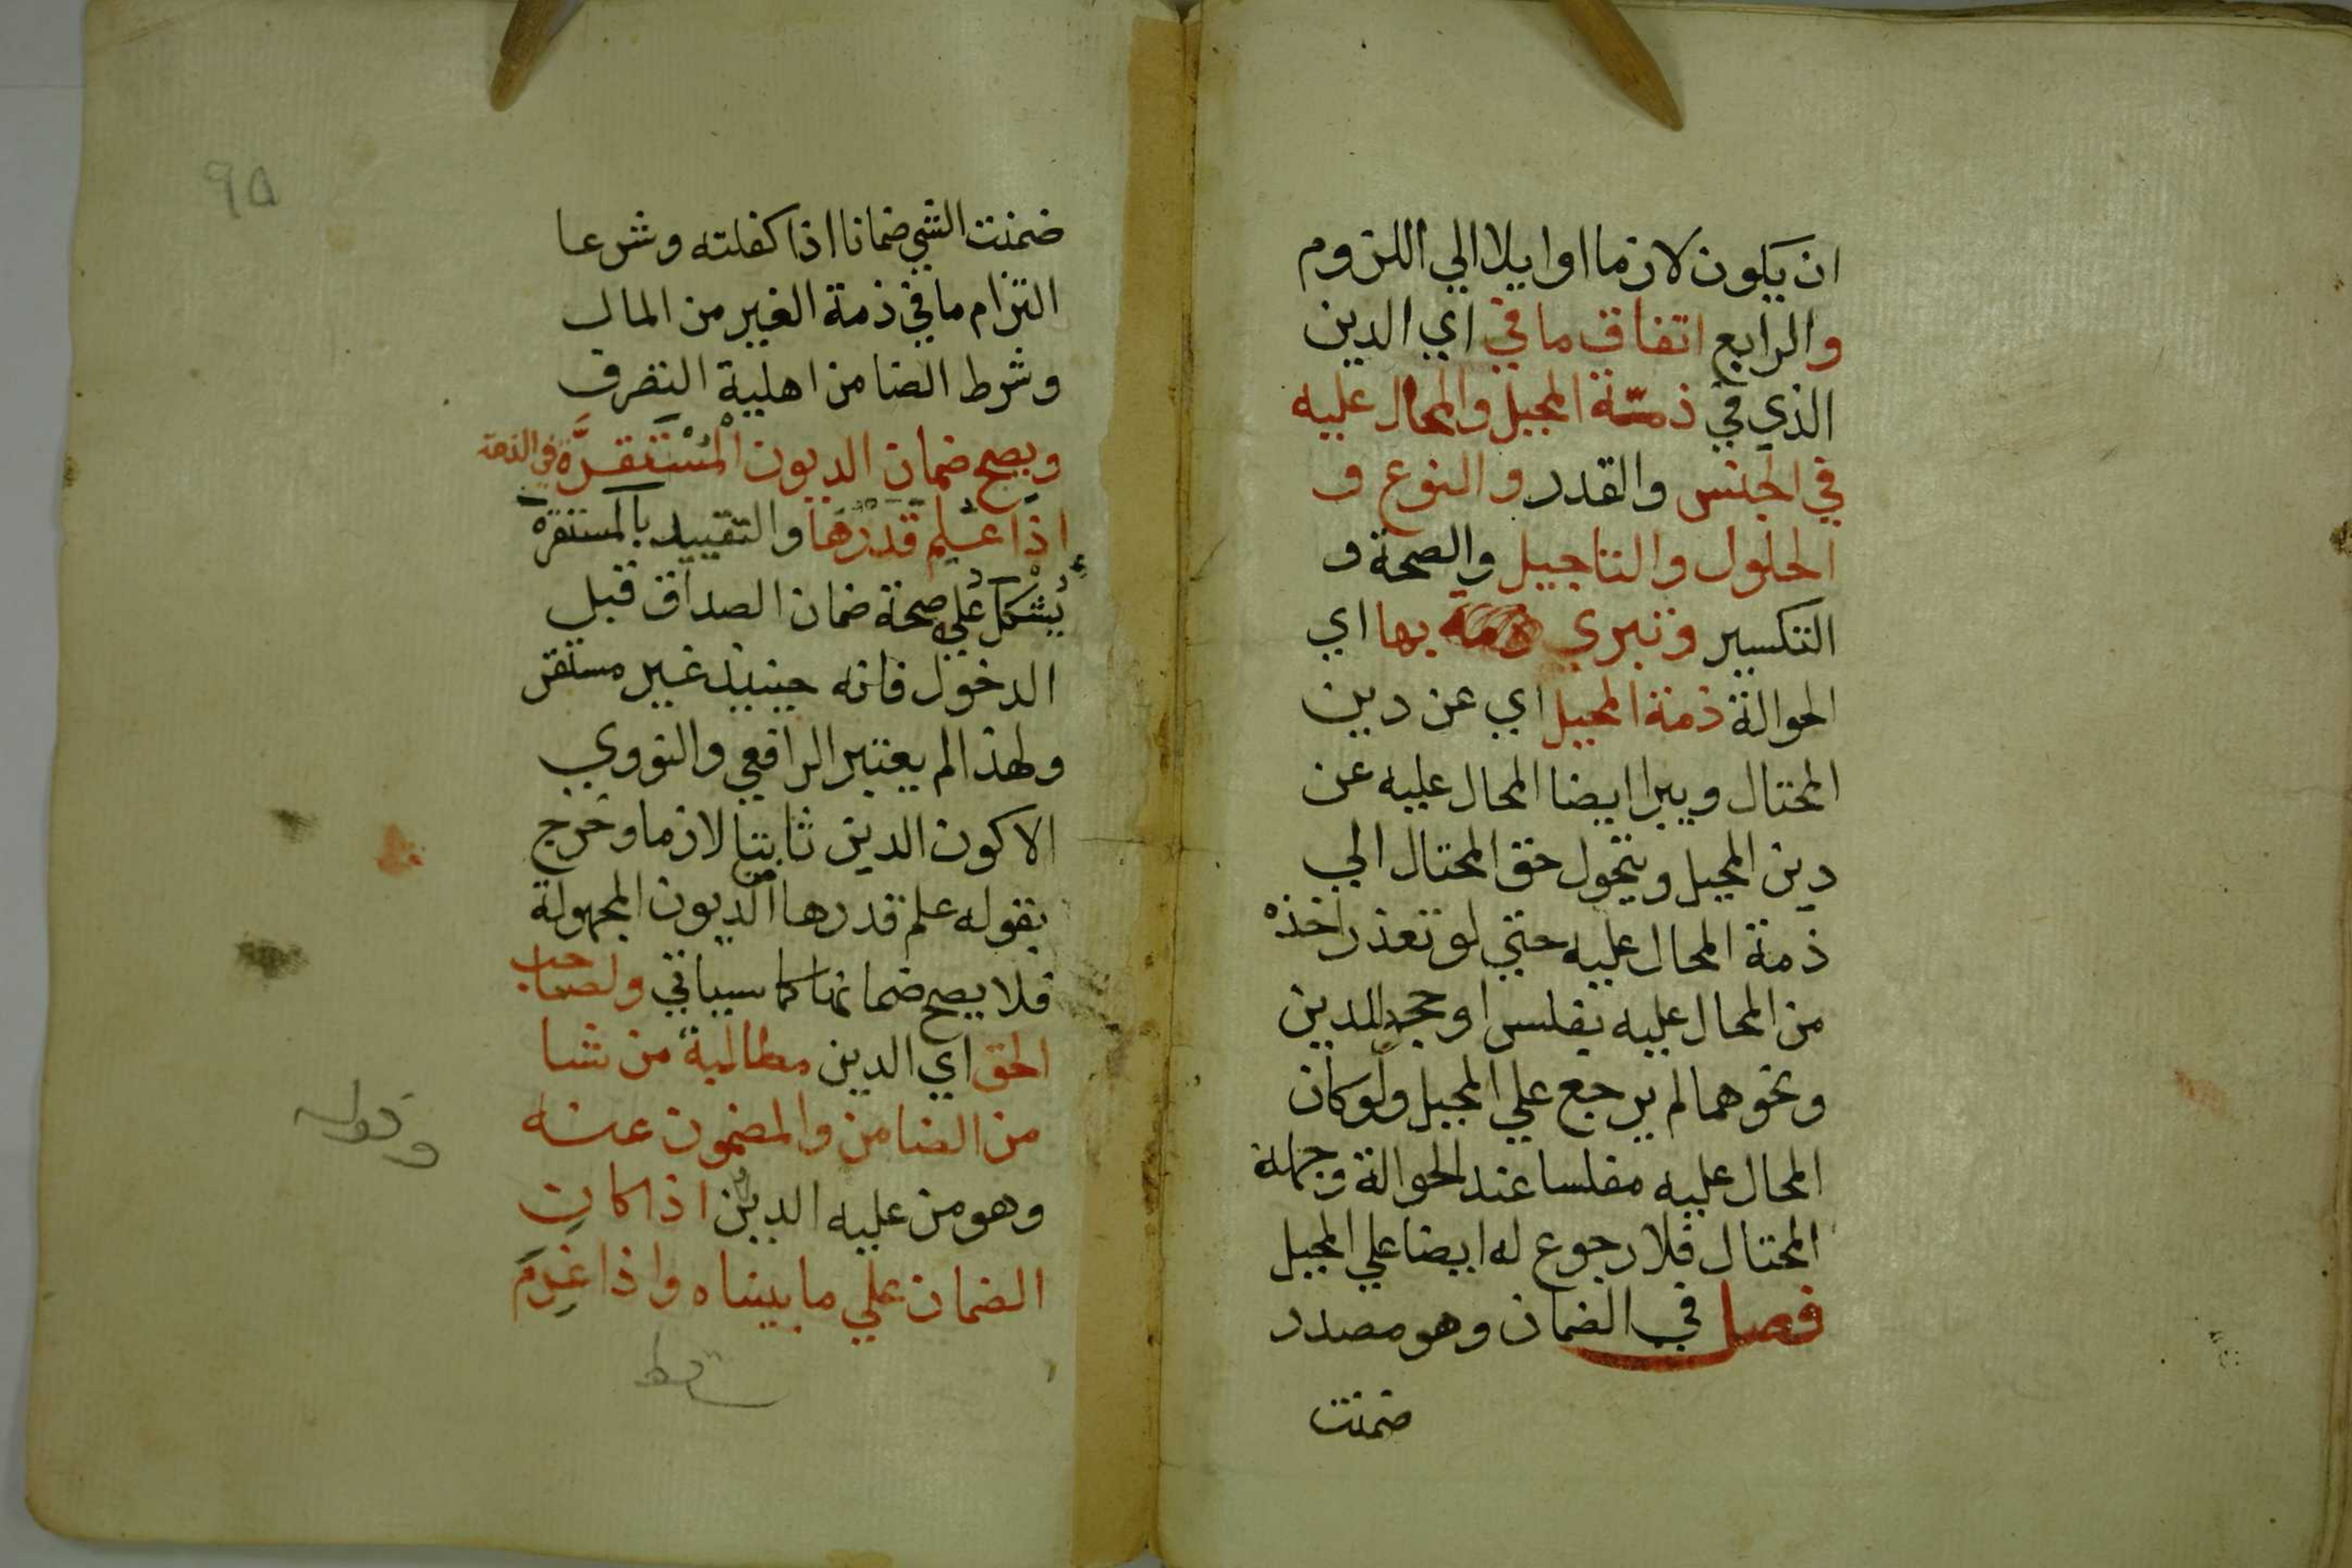 ان يكون لازما اوايلا الي اللزوم
والرابع اتفاق ما في اي الدين
الذي في ذمة المحيل والمحال عليه
في الجنس والقدر والنوع و
الحلول والتاجيل والصحة و
التكسير وتبري بها اي
الحوالة ذمة المحيل اي عن دين
المحتال ويبرا ايضا المحال عليه عن
دين المحيل ويتحول حق المحتال الي
ذمة المحال عليه حتي لو تعذر اخذه
من المحال عليه بفلس او جحد للدين
ونحوهما لم يرجع علي المحيل ولو كان
المحال عليه مفلسا عند الحوالة وجهله
المحتال فلا رجوع له ايضا علي المحيل
فصل في الضمان وهو مصدر
ضمنت
٩٥
ضمنت الشي ضمانا اذا كفلته وشرعا
التزام ما في ذمة الغير من المال
وشرط الضامن اهلية التصرف
ويصح ضمان الديون المستقرة في الذمة
اذا علم قدرها والتقييد بالمستقرة
يشكل علي صحة ضمان الصداق قبل
الدخول فانه حينيذ غير مستقر
ولهذا لم يعتبر الرافعي والنووي
الا كون الدين ثابتا لازما وخرج
بقوله علم قدرها الديون المجهولة
فلا يصح ضمانها كما سياتي ولصاحب
الحق اي الدين مطالبة من شا
من الضامن والمضمون عنه
وهو من عليه الدين اذا كان
الضمان علي ما بيناه واذا غرم
وقوله